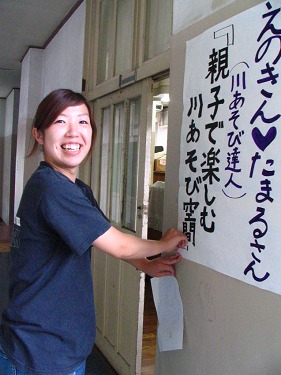 えのきん♥たまるさん
（川あそび達人）
『親子で楽しむ
川あそび空間』